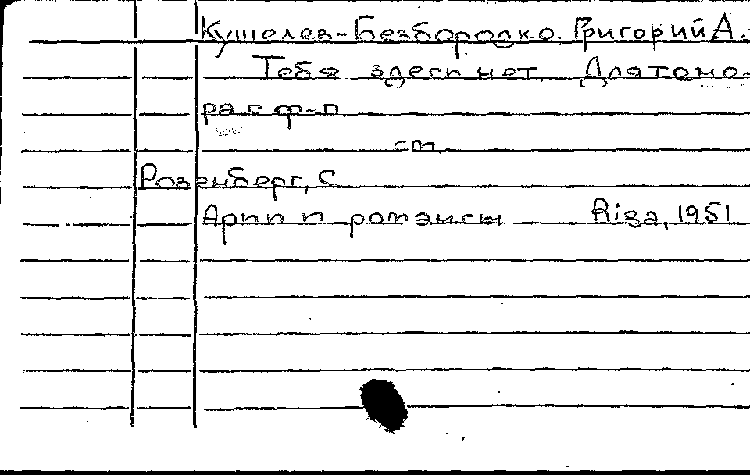 Кушелев-Безбородко. Григорий А.
Тебя здесь нет. Для тено-
ра с ф-п
см.
Розенберг, С
Арии и романсы Riga, 1951